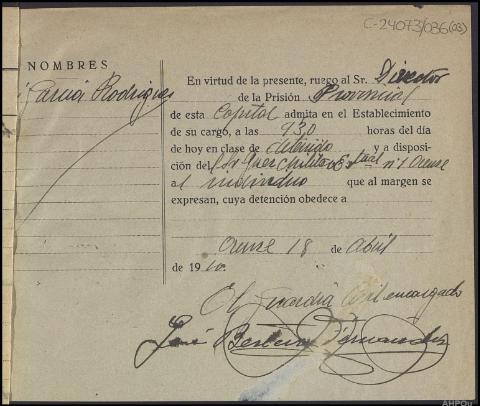 C-24073/036(03)
NOMBRES
García Rodríguez
En virtud de la presente, ruego al Sr. Director
de la Prisión Provincial
de esta Capital admita en el Establecimiento
de su cargo, a las 9'30 horas del día
de hoy en clase de detenido y a disposi-
ción del Sr Juez Militar nº 1 Orense
al individuo que al margen se
expresan, cuya detención obedece a
Orense 18 de Abril
de 19
El Guardia Civil encargado
José Fernández
AHPOu